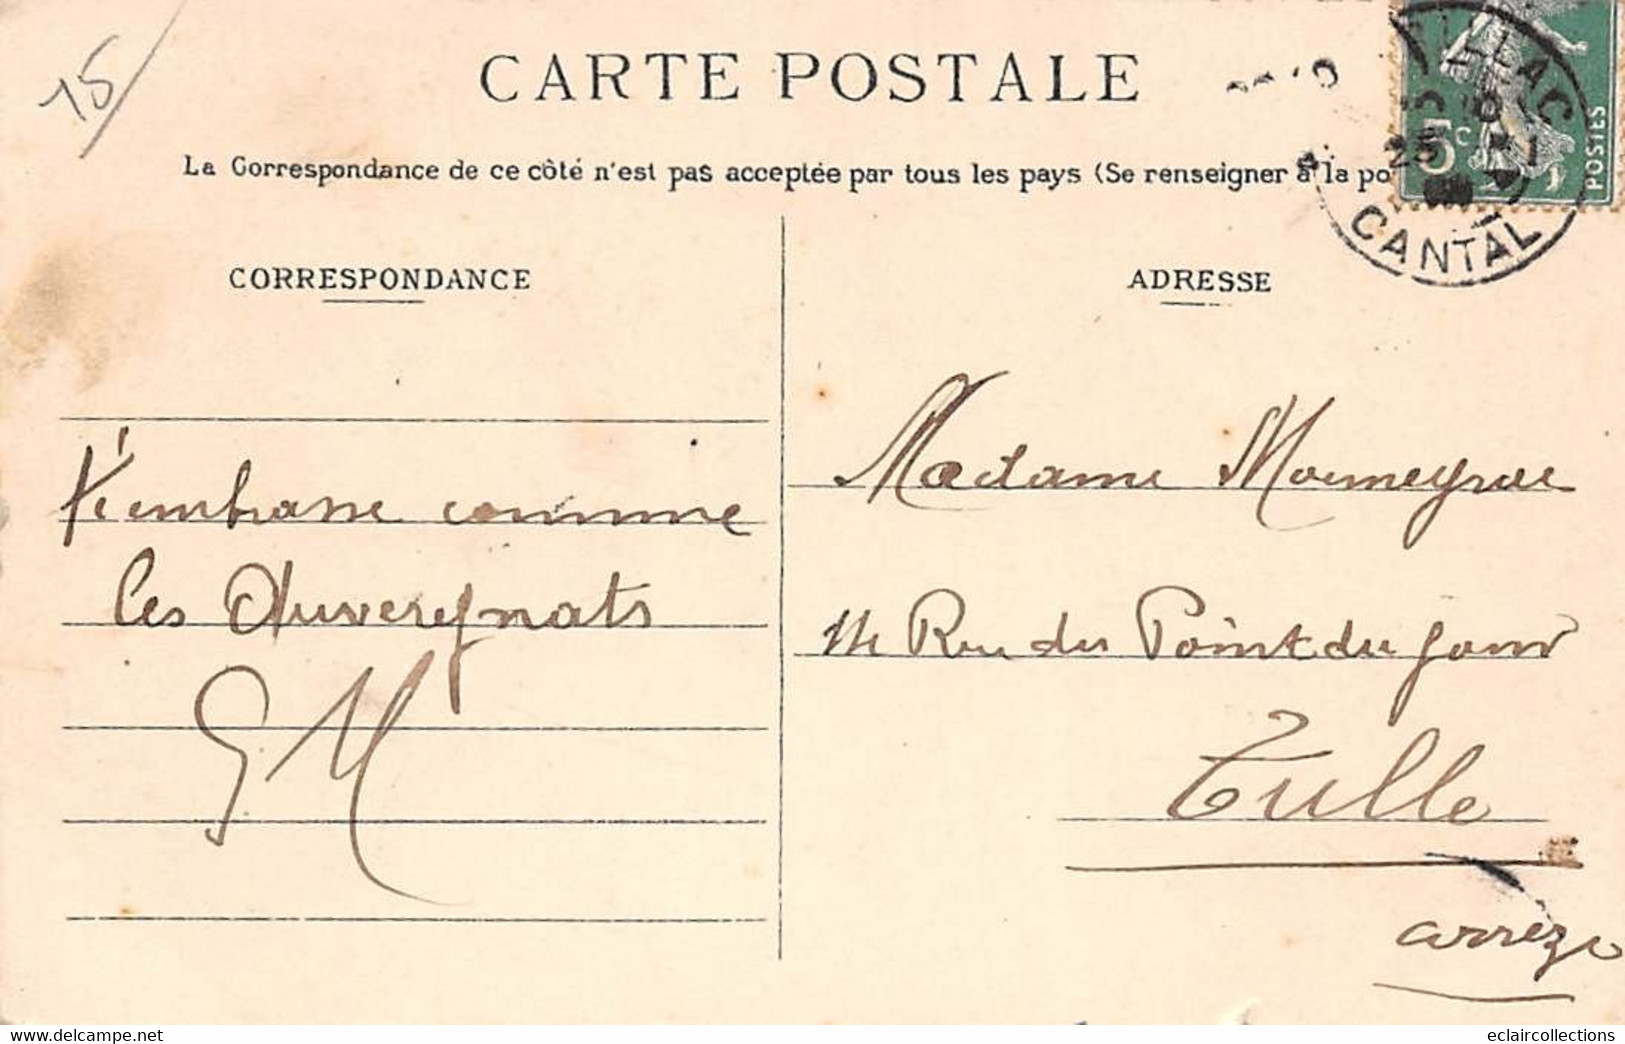 15
CARTE POSTALE
La Correspondance de ce côté n'est pas acceptée par tous les pays (Se renseigner à la po
5c
POSTES
ILLAC
25
CANTAL
CORRESPONDANCE
ADRESSE
t'embrasse comme
les Auvergnats
GM
Madame
Rue du Point du Jour
Tulle
Corrèze
www.delcampe.net
eclaircollections